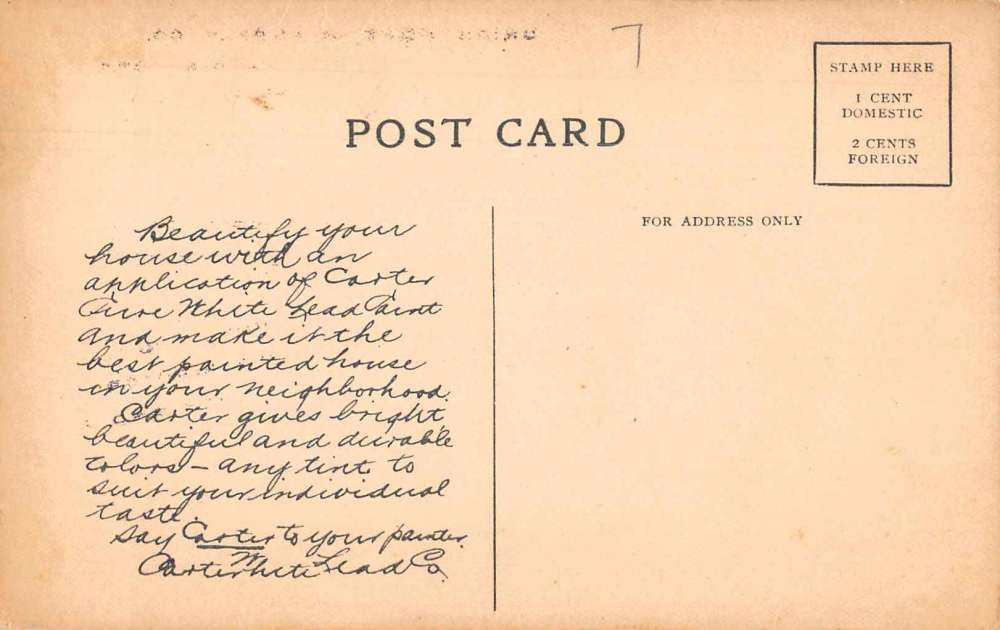 7
STAMP HERE
1 CENT
DOMESTIC
2 CENTS
FOREIGN
POST CARD
FOR ADDRESS ONLY
Beautify your
house with an
application of Carter
Pure White Lead Paint
and make it the
best painted house
in your neighborhood.
Carter gives bright,
beautiful and durable
colors – any tint to
suit your individual
taste.
Say Carter to your painter.
Carter White Lead Co.